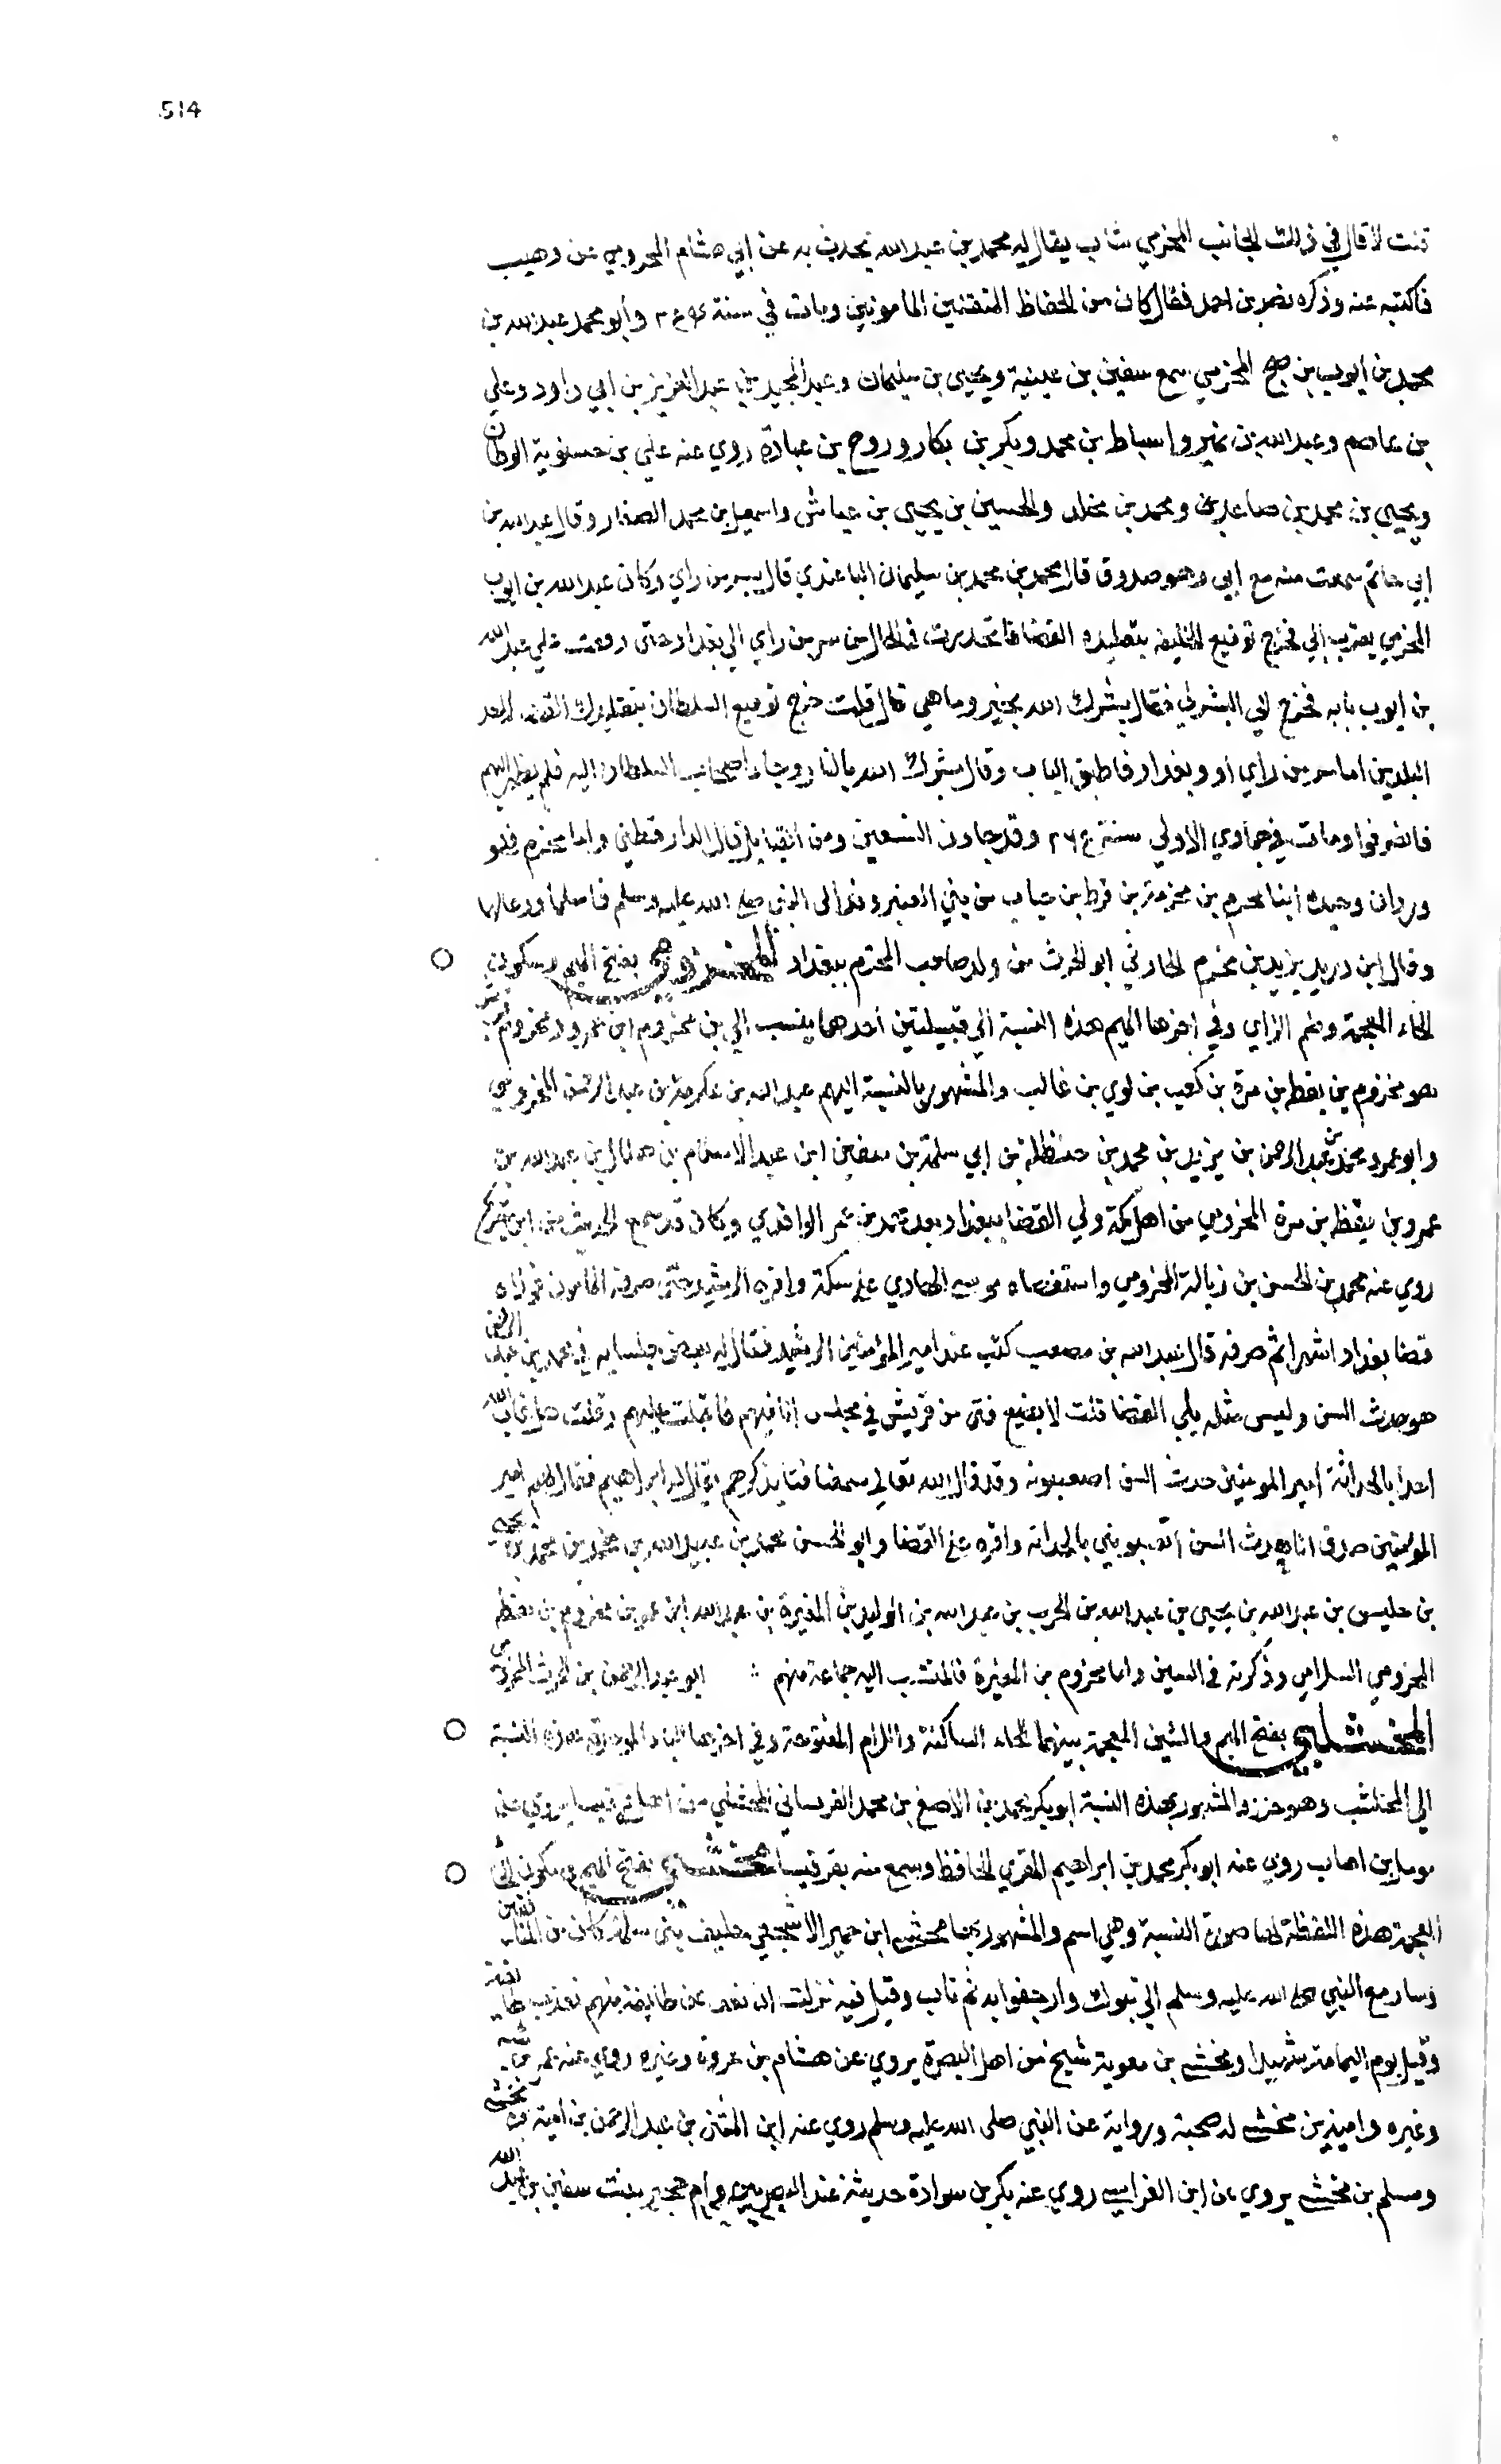 514
قلت لا قال في ذلك الجانب المخرمي شاب يقال له محمد بن عبد الله يحدث به عن ابي هشام المخزومي عن وهيب
فاكتبه عنه وذكره نصر بن احمد فقال كان من الحفاظ المتقنين المامونين ومات في سنة وأبو محمد عبد الله بن
محمد بن ايوب بن صبيح المخرمي سمع سفين بن عيينة ويحيى بن سليمان وعبد المجيد بن عبد العزيز بن ابي داود وعلي
بن عاصم وعبد الله بن نمير واسباط بن محمد وبكر بن بكار وروح بن عبادة روي عنه علي بن حسنوية القطان
ويحيى بن محمد بن صاعد ومحمد بن مخلد والحسين بن يحيى بن عياش واسمعيل بن محمد الصفار وقال عبد الله بن
ابي حاتم سمعت منه مع ابي وهو صدوق قال محمد بن محمد بن سليمان الباغندي قال بسر من راي وكان عبد الله بن ايوب
المخرمي يقرب الي فخرج توقيع الخليفة بتقليده القضا فانحدرت في الحال من سر من راي الي بغداد حتى دققت علي عبد الله
بن ايوب بابه فخرج الي البشرني فقال بشرك الله بخير وما هي قال قلت خرج توقيع السلطان بتقليدك القضا لاحد
البلدين اما سر من راي او وبغداد فاطبق الباب وقال بشرك الله بالنار وجاء اصحاب السلطان اليه فلم يظهر اليهم
فانصرفوا ومات في جمادي الاولي سنة وقد جاوز التسعين قال الدارقطني واما مخرم فهو
وردان وحيدة ابنا مخرم بن مخرمة بن قرط بن جناب من بني العنبر وفدا الى النبي صلى الله عليه وسلم فاسلما ودعا لهما
وقال ابن دريد يزيد بن مخرم الحارثي ابو الحرث من ولد صاحب المخرم ببغداد المخزومي بفتح الميم وسكون
الخاء المعجمة وضم الزاي وفي اخرها الميم هذه النسبة الي قبيلتين أحدهما ينسب الي بني مخزوم ابن عمرو ومخزوم قريش
هو مخزوم بن يقظة بن مرة بن كعب بن لوي بن غالب والمشهور بالنسبة اليهم عبد الله بن عكرمة بن عبد الرحمن المخزومي
وابو عمرو محمد بن عبد الرحمن بن يزيد بن محمد بن حنظلة بن ابي سلمة بن سفين ابن عبد الاسد بن هلال بن عبد الله بن
عمرو بن يقظة بن مرة المخزومي من اهل مكة ولي القضا ببغداد بعد محمد بن عمر الواقدي وكان قد سمع الحديث من ابن جريج
روي عنه محمد بن الحسن بن زبالة المخزومي واستقضاه موسى الهادي على مكة واقره الرشيد حتى صرفه المامون فولاه
قضا بغداد اشهرا ثم صرفه قال عبد الله بن مصعب كنت عند امير المؤمنين الرشيد فقال له بعض جلسايه في محمد بن عبد الرحمن
هو حدث السن وليس مثله يلي القضا قلت لا يضيع فتى من قريش في مجلس انا فيهم فاقبلت عليهم وقلت هل عاب الله
احدا بالحداثة امير المومنين حدث السن افتعيبونه وقد قال الله تعالى سمعنا فتا يذكرهم يقال له ابراهيم فقال لهم امير
المؤمنين صدق انا حدث السن اتعيبونني بالحداثة واقره على القضا وابو الحسن محمد بن عبيد الله بن محمد بن محمد بن يحيى
بن حليس بن عبد الله بن يحيى بن عبد الله بن الحرث بن عبد الله بن الوليد بن المغيرة بن عبد الله ابن عمر بن مخزوم بن يقظة
المخزومي السلامي وذكرته في السين واما مخزوم بن المغيرة فالمنتسب اليه جماعة منهم ابو عبد الرحمن بن الحرث المخزومي
المخشلبي بفتح الميم والشين المعجمة بينهما الخاء الساكنة واللام المفتوحة وفي اخرها الباء الموحدة هذه النسبة
الي المخشلب وهو خرز والمشهور بهذه النسبة ابو بكر محمد بن الاصبغ بن محمد القرقساني المخشلبي من اهل قرقيسيا يروي عن
موسى بن اهاب روى عنه ابو بكر محمد بن ابراهيم المقري الحافظ وسمع منه بقرقيسيا مخشي بفتح الميم وسكون الخا
المعجمة هذه اللفظة لها صورة النسبة وهي اسم والمشهور بها مخشي ابن حمير الاشجعي حليف بني سلمة وكان من المنافقين
وسار مع النبي صلى الله عليه وسلم الي تبوك وارجفوا به ثم تاب وقيل فيه نزلت ان نعف عن طايفة منهم نعذب طايفة
وقتل يوم اليمامة شهيدا ومخشي بن معوية شيخ من اهل البصرة يروي عن هشام بن عروة وغيره روي عنه عمر بن شبه
وغيره وامية بن مخشي له صحبة ورواية عن النبي صلى الله عليه وسلم روي عنه ابن المثنى بن عبد الرحمن بن امية بن مخشي
ومسلم بن مخشي يروي عن ابن الفراسي روي عنه بكر بن سوادة حديثه عند المصريين وام حجير بنت سفين بن عبد الله